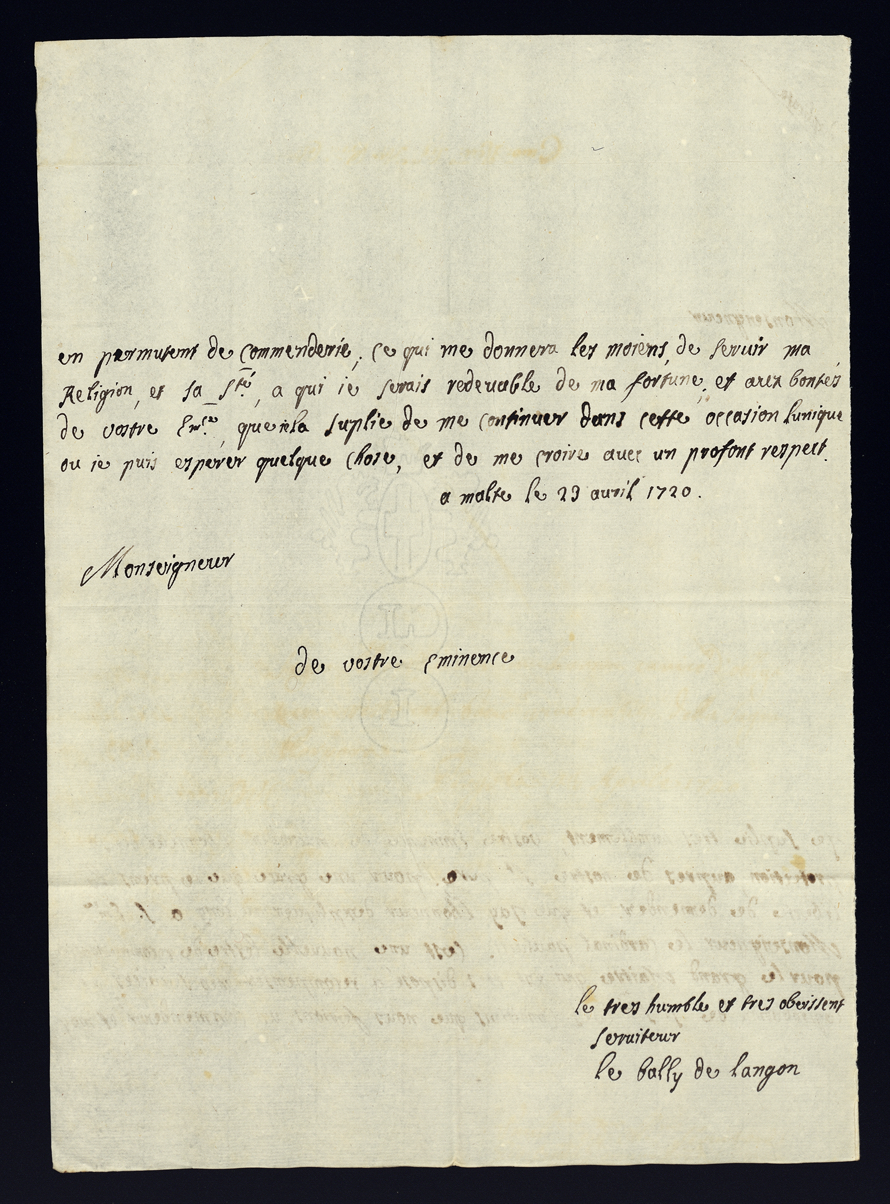 en permutent de commenderie, ce qui me donnera les moiens, de seruir ma
Religion, et sa Sté, a qui ie serais redeuable de ma fortune, et arex bontés
de vostre Emce, que ie la suplie de me continuer dans cette occasion lunique
ou ie puis esperer quelque chose, et de me croire auec un profont respect.
a malte le 29 auril 1720.
Monseigneur
de vostre eminence
le tres humble et tres obeissent
seruiteur
le bally de langon